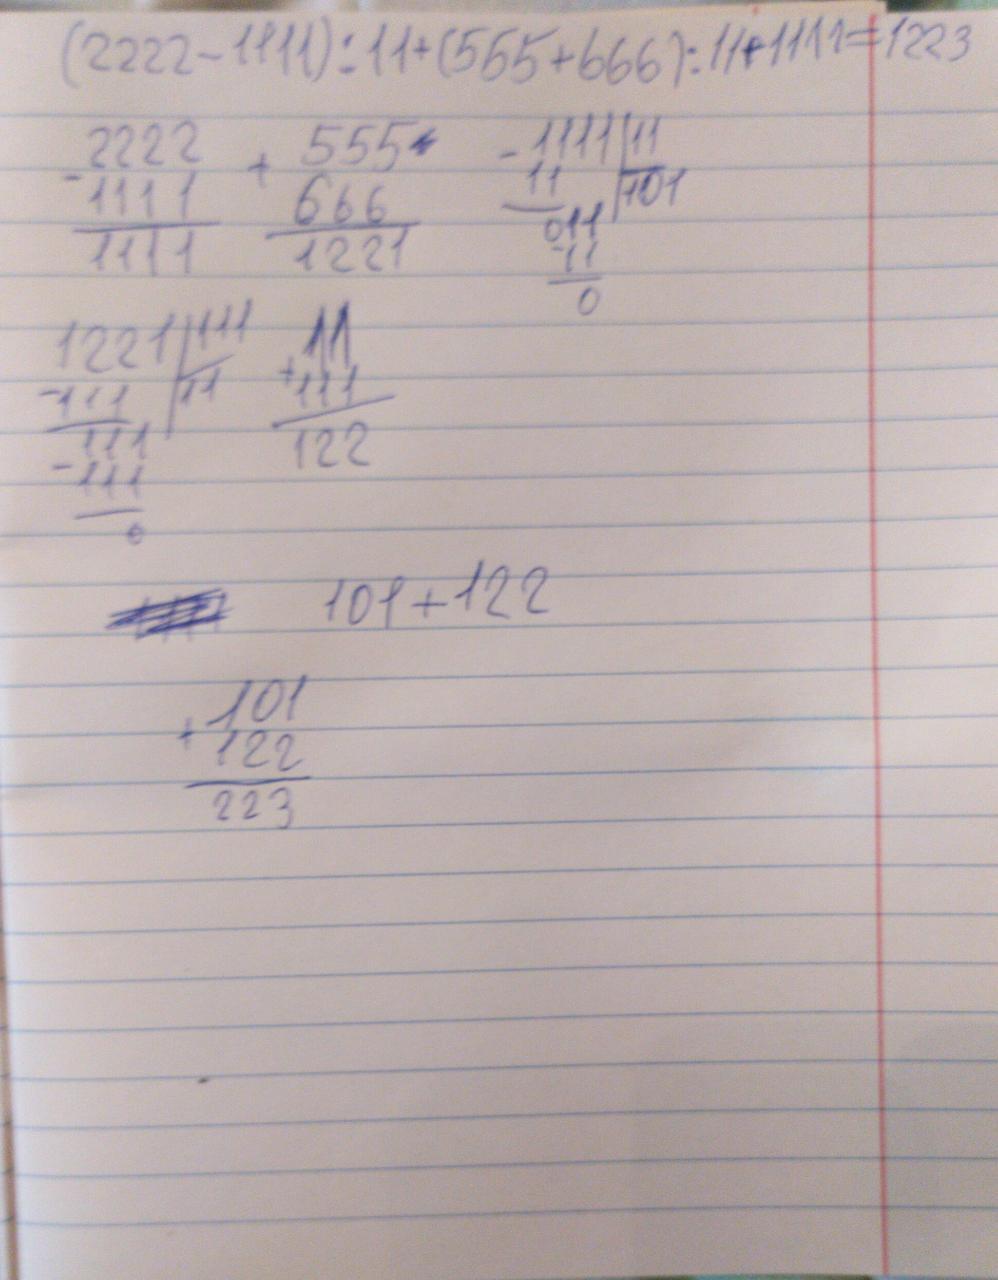 (2222-1111):11+(555+666):11+1111=1223
2222 + 555 -1111 | 11
-1111 666 11 101
1111 1221 011
-11
0
1221 | 111 11
-111 11 +111
111 122
-111
0
101+122
101
+122
223